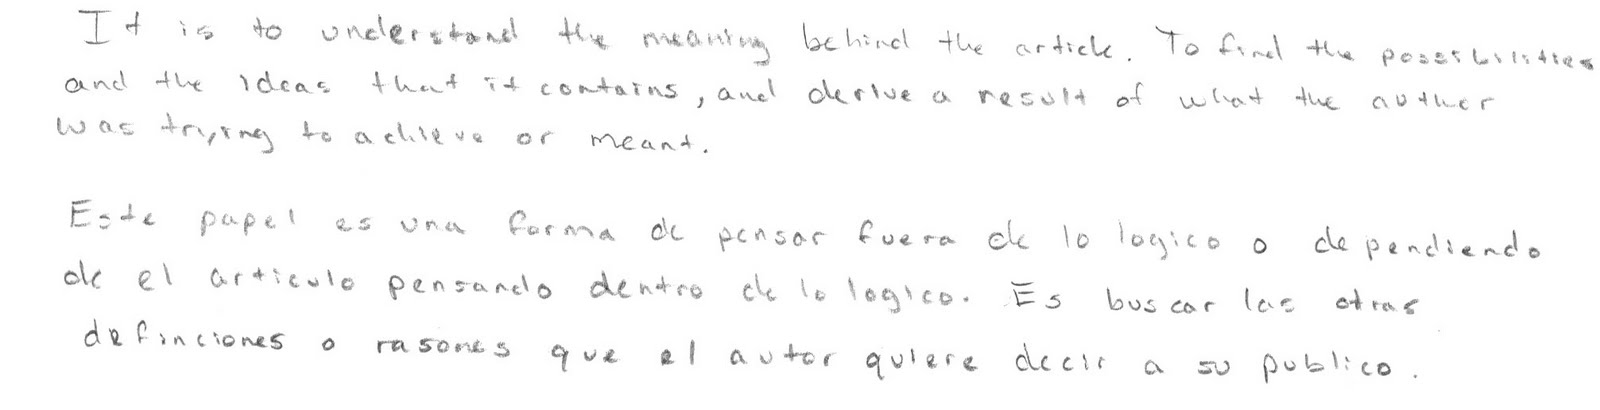 It is to understand the meaning behind the article. To find the possibilities
and the ideas that it contains, and derive a result of what the auther
was trying to achieve or meant.
Este papel es una forma de pensar fuera de lo logico o dependiendo
de el articulo pensando dentro de lo logico. Es buscar las otras
definciones o rasones que el autor quiere decir a su publico.